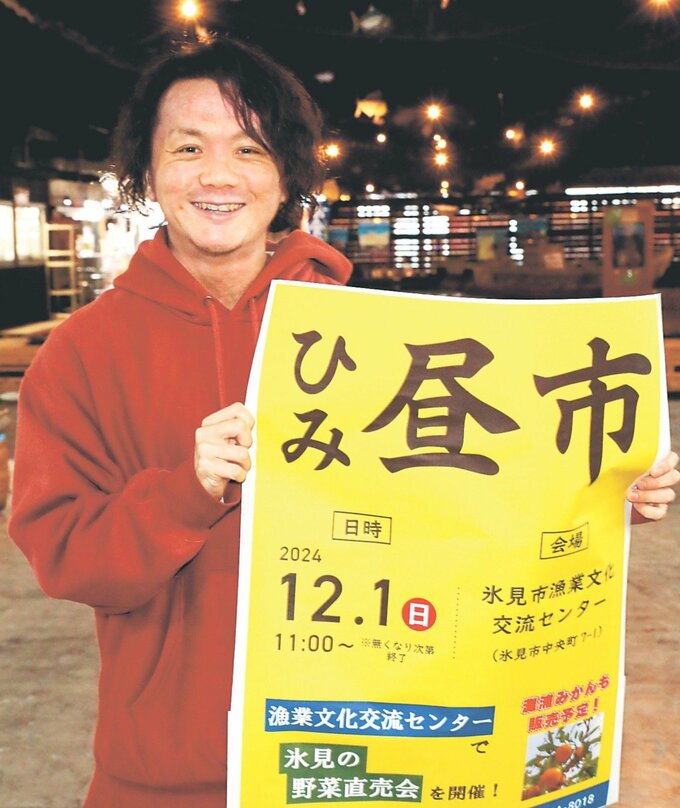 ひみ昼市
日時
2024
12.1(日)
11:00～
※無くなり次第
終了
会場
氷見市漁業文化
交流センター
(氷見市中央町7-1)
漁業文化交流センターで
氷見の
野菜直売会を開催!
灘浦みかんも
販売予定!
8018